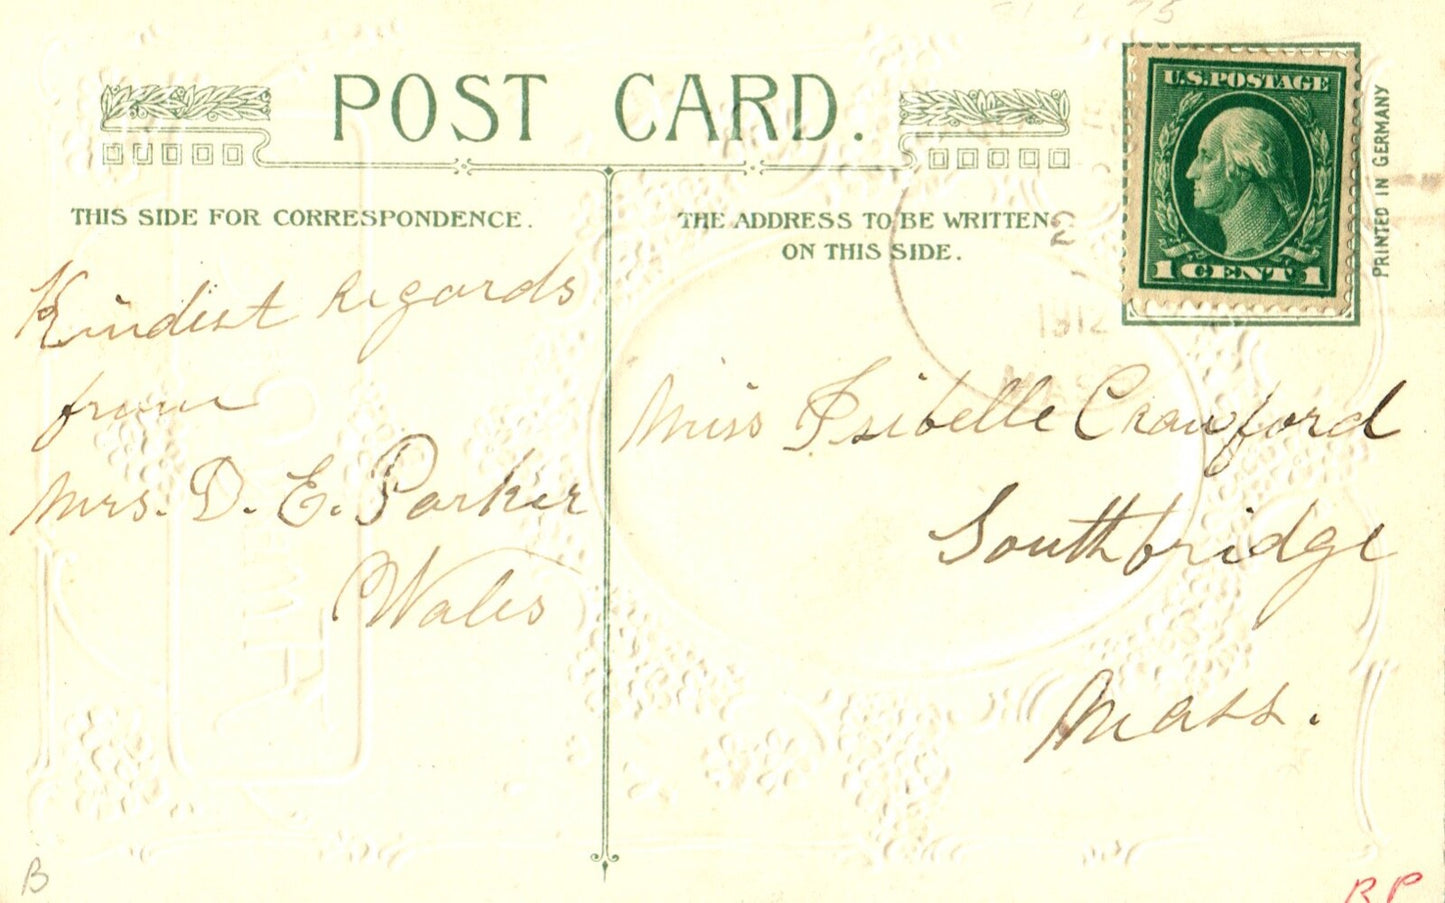 POST CARD.
THIS SIDE FOR CORRESPONDENCE.
Kindest Regards
from
Mrs. D. E. Parker
Wales
THE ADDRESS TO BE WRITTEN
ON THIS SIDE.
U.S. POSTAGE
1 CENT 1
PRINTED IN GERMANY
2
1912
Miss Isibelle Crawford
Southbridge
Mass.
B
RP